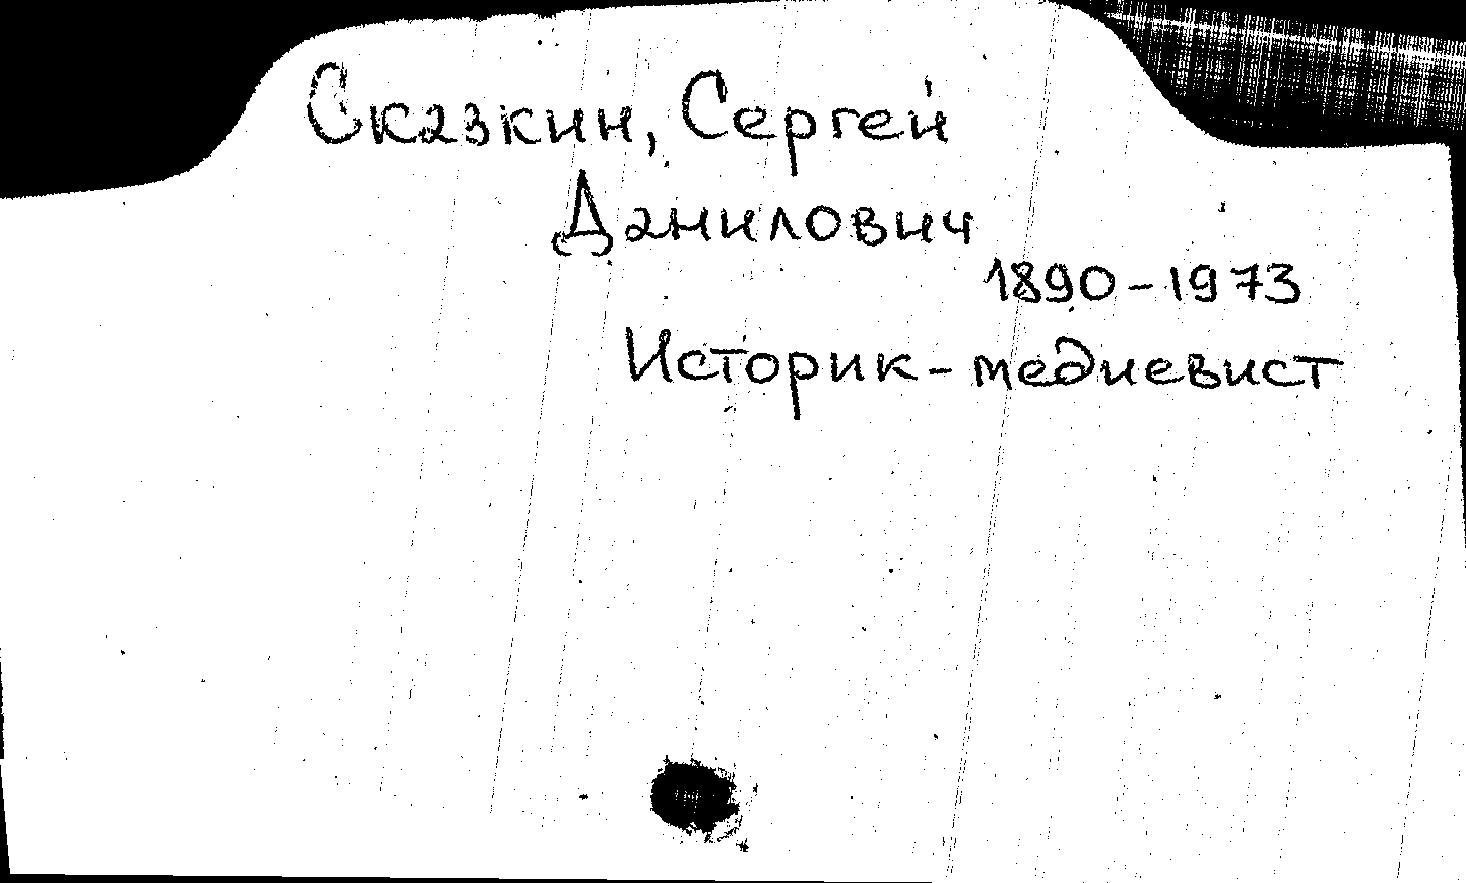 Сказкин, Сергей
Данилович
1890-1973
Историк-медиевист